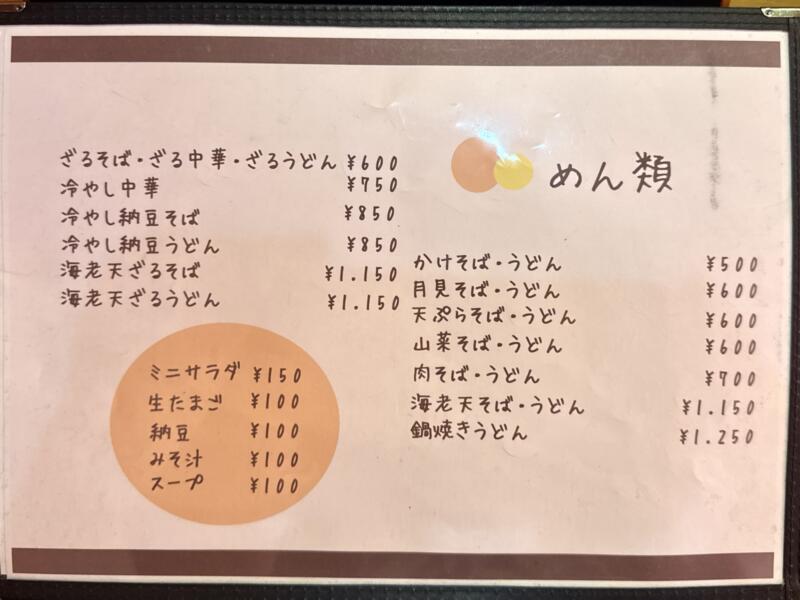 めん類
ざるそば・ざる中華・ざるうどん ¥600
冷やし中華 ¥750
冷やし納豆そば ¥850
冷やし納豆うどん ¥850
海老天ざるそば ¥1.150
海老天ざるうどん ¥1.150
ミニサラダ ¥150
生たまご ¥100
納豆 ¥100
みそ汁 ¥100
スープ ¥100
かけそば・うどん ¥500
月見そば・うどん ¥600
天ぷらそば・うどん ¥600
山菜そば・うどん ¥600
肉そば・うどん ¥700
海老天そば・うどん ¥1.150
鍋焼きうどん ¥1.250